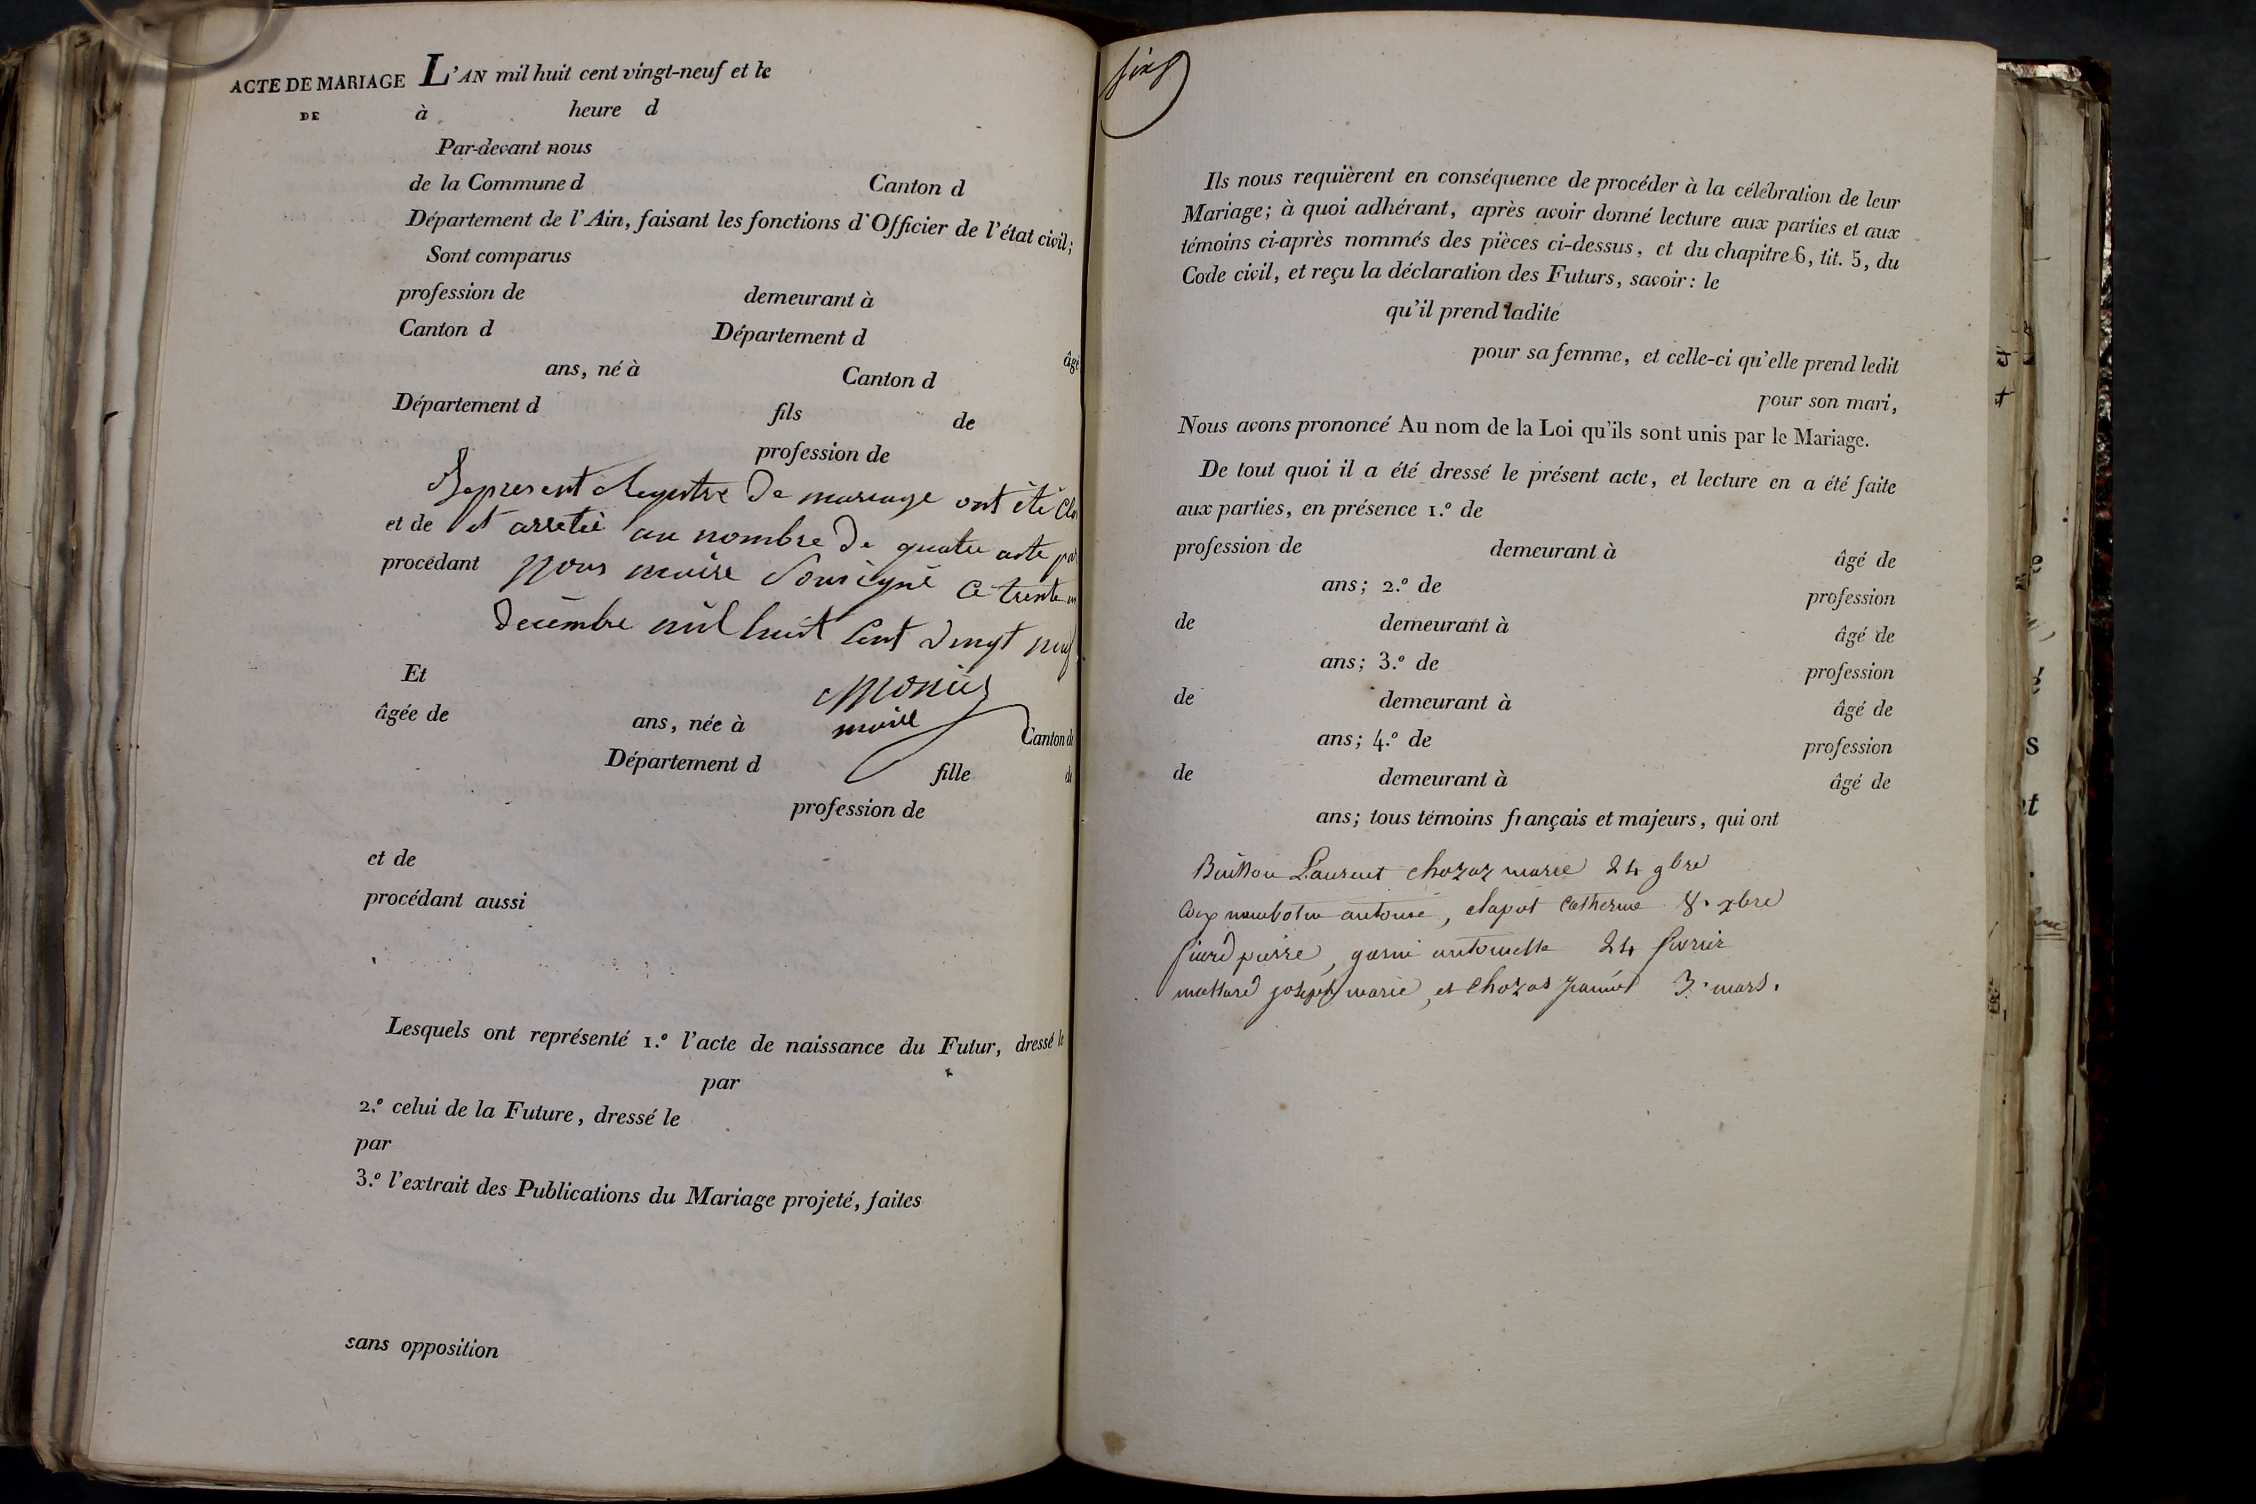 ACTE DE MARIAGE L'AN mil huit cent vingt-neuf et le
DE à heure d
Par-devant nous
de la Commune d Canton d
Département de l'Ain, faisant les fonctions d'Officier de l'état civil;
Sont comparus
profession de demeurant à
Canton d Département d
âgé
ans, né à Canton d
Département d fils de
profession de
present Registre de mariage ont été Clos
et de et arretée au nombre de quatre acte par
procédant Nous maire Sousigné Ce trente un
decembre mil huit Cent vingt neuf
Et
maire
âgée de ans, née à Canton de
Département d fille de
profession de
et de
procédant aussi
Lesquels ont représenté 1.º l'acte de naissance du Futur, dressé le
par
2.º celui de la Future, dressé le
par
3.º l'extrait des Publications du Mariage projeté, faites
sans opposition
six
Ils nous requièrent en conséquence de procéder à la célébration de leur
Mariage; à quoi adhérant, après avoir donné lecture aux parties et aux
témoins ci-après nommés des pièces ci-dessus, et du chapitre 6, tit. 5, du
Code civil, et reçu la déclaration des Futurs, savoir: le
qu'il prend ladite
pour sa femme, et celle-ci qu'elle prend ledit
pour son mari,
Nous avons prononcé Au nom de la Loi qu'ils sont unis par le Mariage.
De tout quoi il a été dressé le présent acte, et lecture en a été faite
aux parties, en présence 1.º de
profession de demeurant à âgé de
ans; 2.º de profession
de demeurant à âgé de
ans; 3.º de profession
de demeurant à âgé de
ans; 4.º de profession
de demeurant à âgé de
ans; tous témoins français et majeurs, qui ont
Laurent chozaz marie 24 9bre
antoine, clapot Catherine 8. xbre
pierre, antoinette 24 fevrier
joseph marie, et Chozas 3. mars.